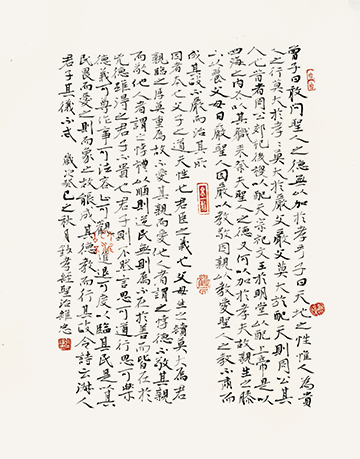 曾子曰敢問聖人之德無以加於孝乎子曰天地之性惟人為貴
人之行莫大於孝孝莫大於嚴父嚴父莫大於配天則周公其
人也昔者周公郊祀後稷以配天宗祀文王於明堂以配上帝是以
四海之內各以其職來祭夫聖人之德又何以加於孝乎故親生之膝
下以養父母日嚴聖人因嚴以教敬因親以教愛聖人之教不肅而
成其政不嚴而治其所
因者本也父子之道天性也君臣之義也父母生之續莫大焉君
親臨之厚莫重焉故不愛其親而愛他人者謂之悖德不敬其親
而敬他人者謂之悖禮以順則逆民無則焉不在於善而皆在於
凶德雖得之君子不貴也君子則不然言思可道行思可樂
德義可尊作事可法容止可觀進退可度以臨其民是以其
民畏而愛之則而象之故能成其德教而行其政令詩云淑人
君子其儀不忒 歲次癸巳秋月錄孝經聖治維忠